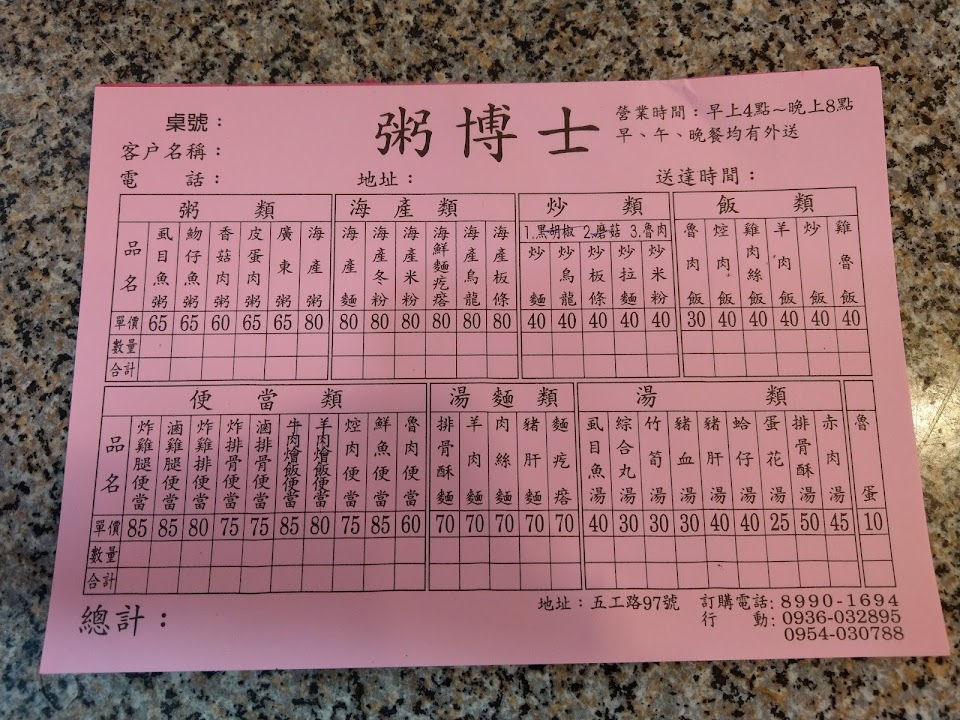 粥博士
營業時間：早上4點～晚上8點
早、午、晚餐均有外送
桌號：
客户名稱：
電話： 地址： 送達時間：
粥類 海產類 炒類 飯類
1.黑胡椒 2.磨菇 3.魯肉
品名 虱目魚粥 魩仔魚粥 香菇肉粥 皮蛋肉粥 廣東粥 海產粥 海產麵 海產冬粉 海產米粉 海鮮麵疙瘩 海產烏龍 海產板條 炒麵 炒烏龍 炒板條 炒拉麵 炒米粉 魯肉飯 焢肉飯 雞肉絲飯 羊肉飯 炒飯 雞魯飯
單價 65 65 60 65 65 80 80 80 80 80 80 80 40 40 40 40 40 30 40 40 40 40 40
數量
合計
便當類 湯麵類 湯類
品名 炸雞腿便當 滷雞腿便當 炸雞排便當 炸排骨便當 滷排骨便當 牛肉燴飯便當 羊肉燴飯便當 焢肉便當 鮮魚便當 魯肉便當 排骨酥麵 羊肉麵 肉絲麵 豬肝麵 麵疙瘩 虱目魚湯 綜合丸湯 竹筍湯 豬血湯 豬肝湯 蛤仔湯 蛋花湯 排骨酥湯 赤肉湯 魯蛋
單價 85 85 80 75 75 85 80 75 85 60 70 70 70 70 70 40 30 30 30 40 40 25 50 45 10
數量
合計
總計：
地址：五工路97號 訂購電話：8990-1694
行動：0936-032895
0954-030788